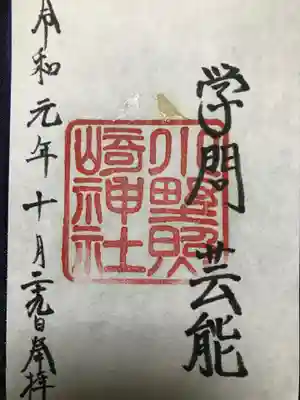 学問 芸能
小野照
崎神社
令和元年十月二十九日奉拝